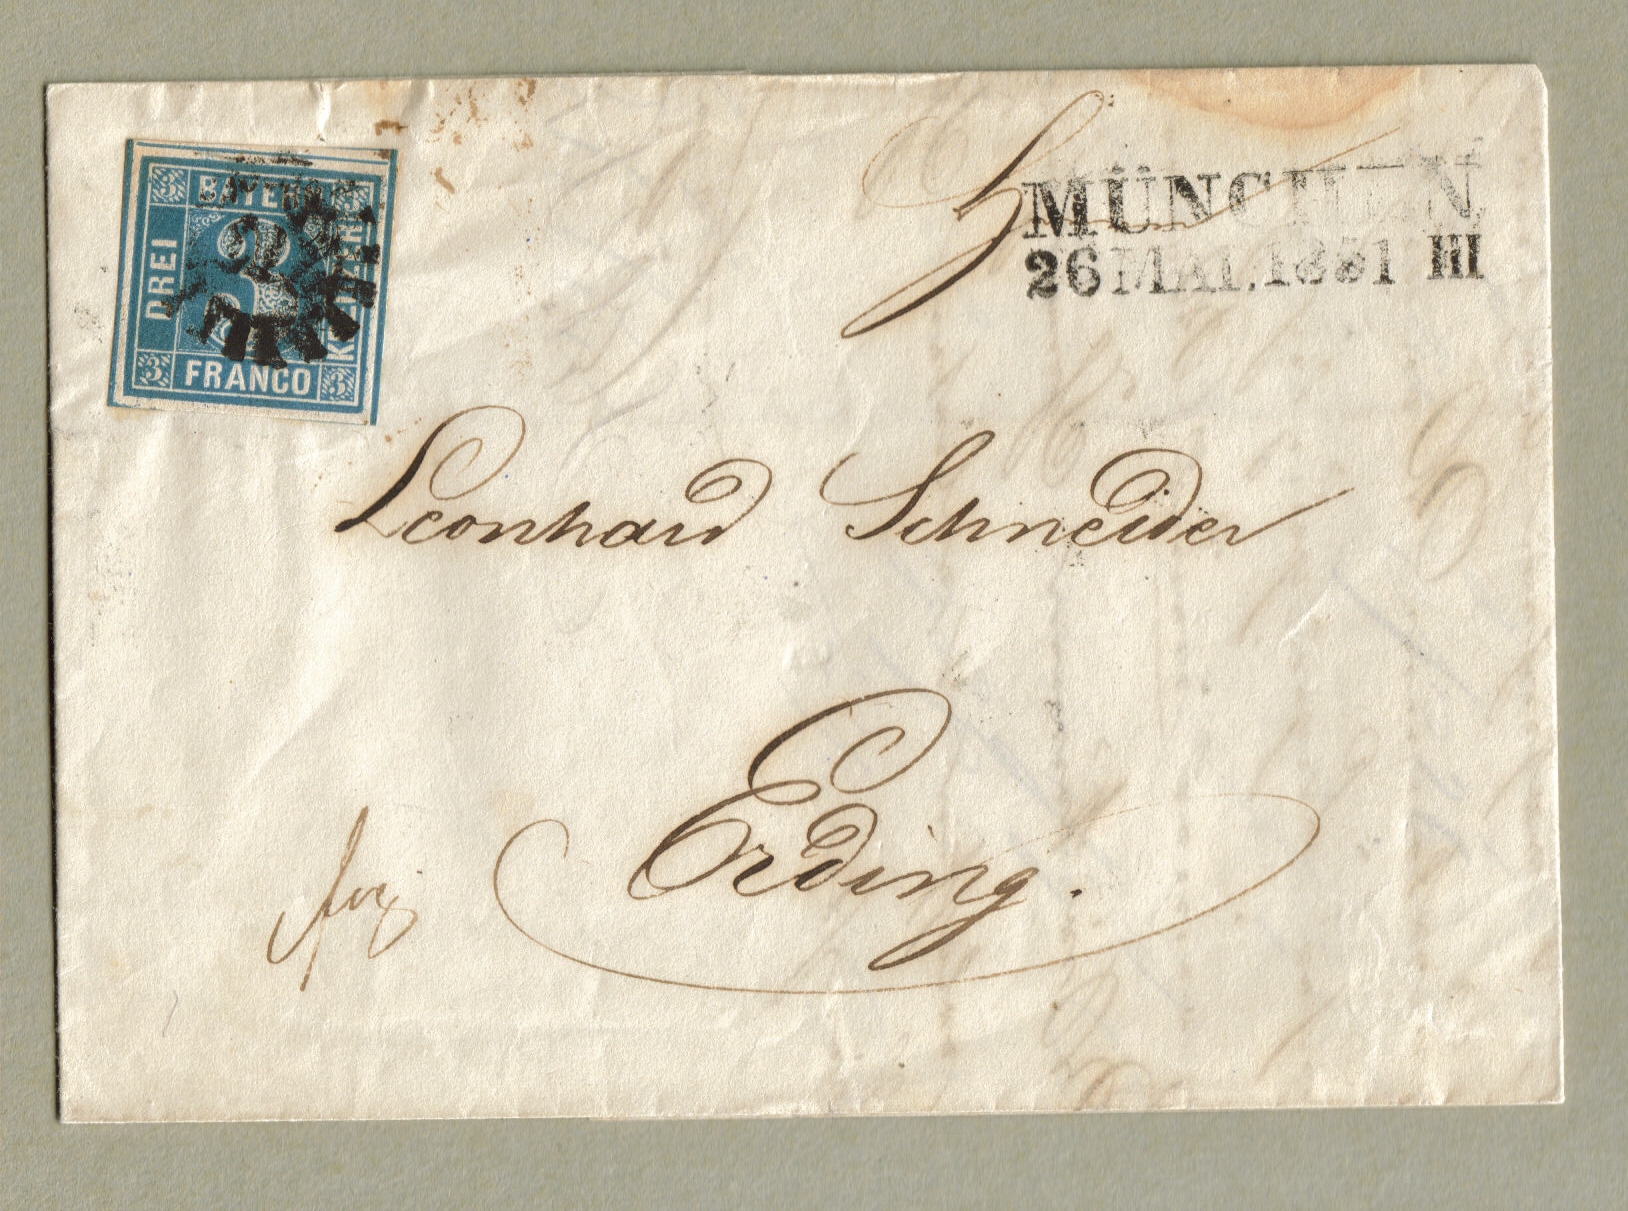 BAYERN
3 3
DREI 3 KREUZER
3 3
FRANCO
MÜNCHEN
26 MAI.1851 III
Leonhard Schneider
Erding.